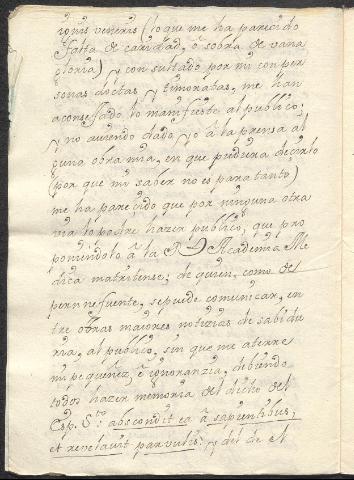 ionis veneris (lo que me ha parecido
falta de caridad, ò sobra de vana
gloria) y consultado por mi con per
sonas doctas y timoratas, me han
aconsejado lo manifieste al publico;
y no aviendo dado yo à la prensa al
guna obra mia, en que pudiera decirlo
(por que mi saber no es para tanto)
me ha parecido que por ninguna otra
via lo podre hazer publico, que pro
poniendolo à la Rl Academia Me
dica matritense; de quien, como de
perenne fuente, se puede comunicar, en
tre otras maiores notizias de sabidu
ria, al publico, sin que me aterre
mi pequeñez è ignoranzia, debiendo
todos hazer memoria del dicho del
Esp. Sto: abscondit ea à sapientibus,
et revelavit parvulis: y del de el